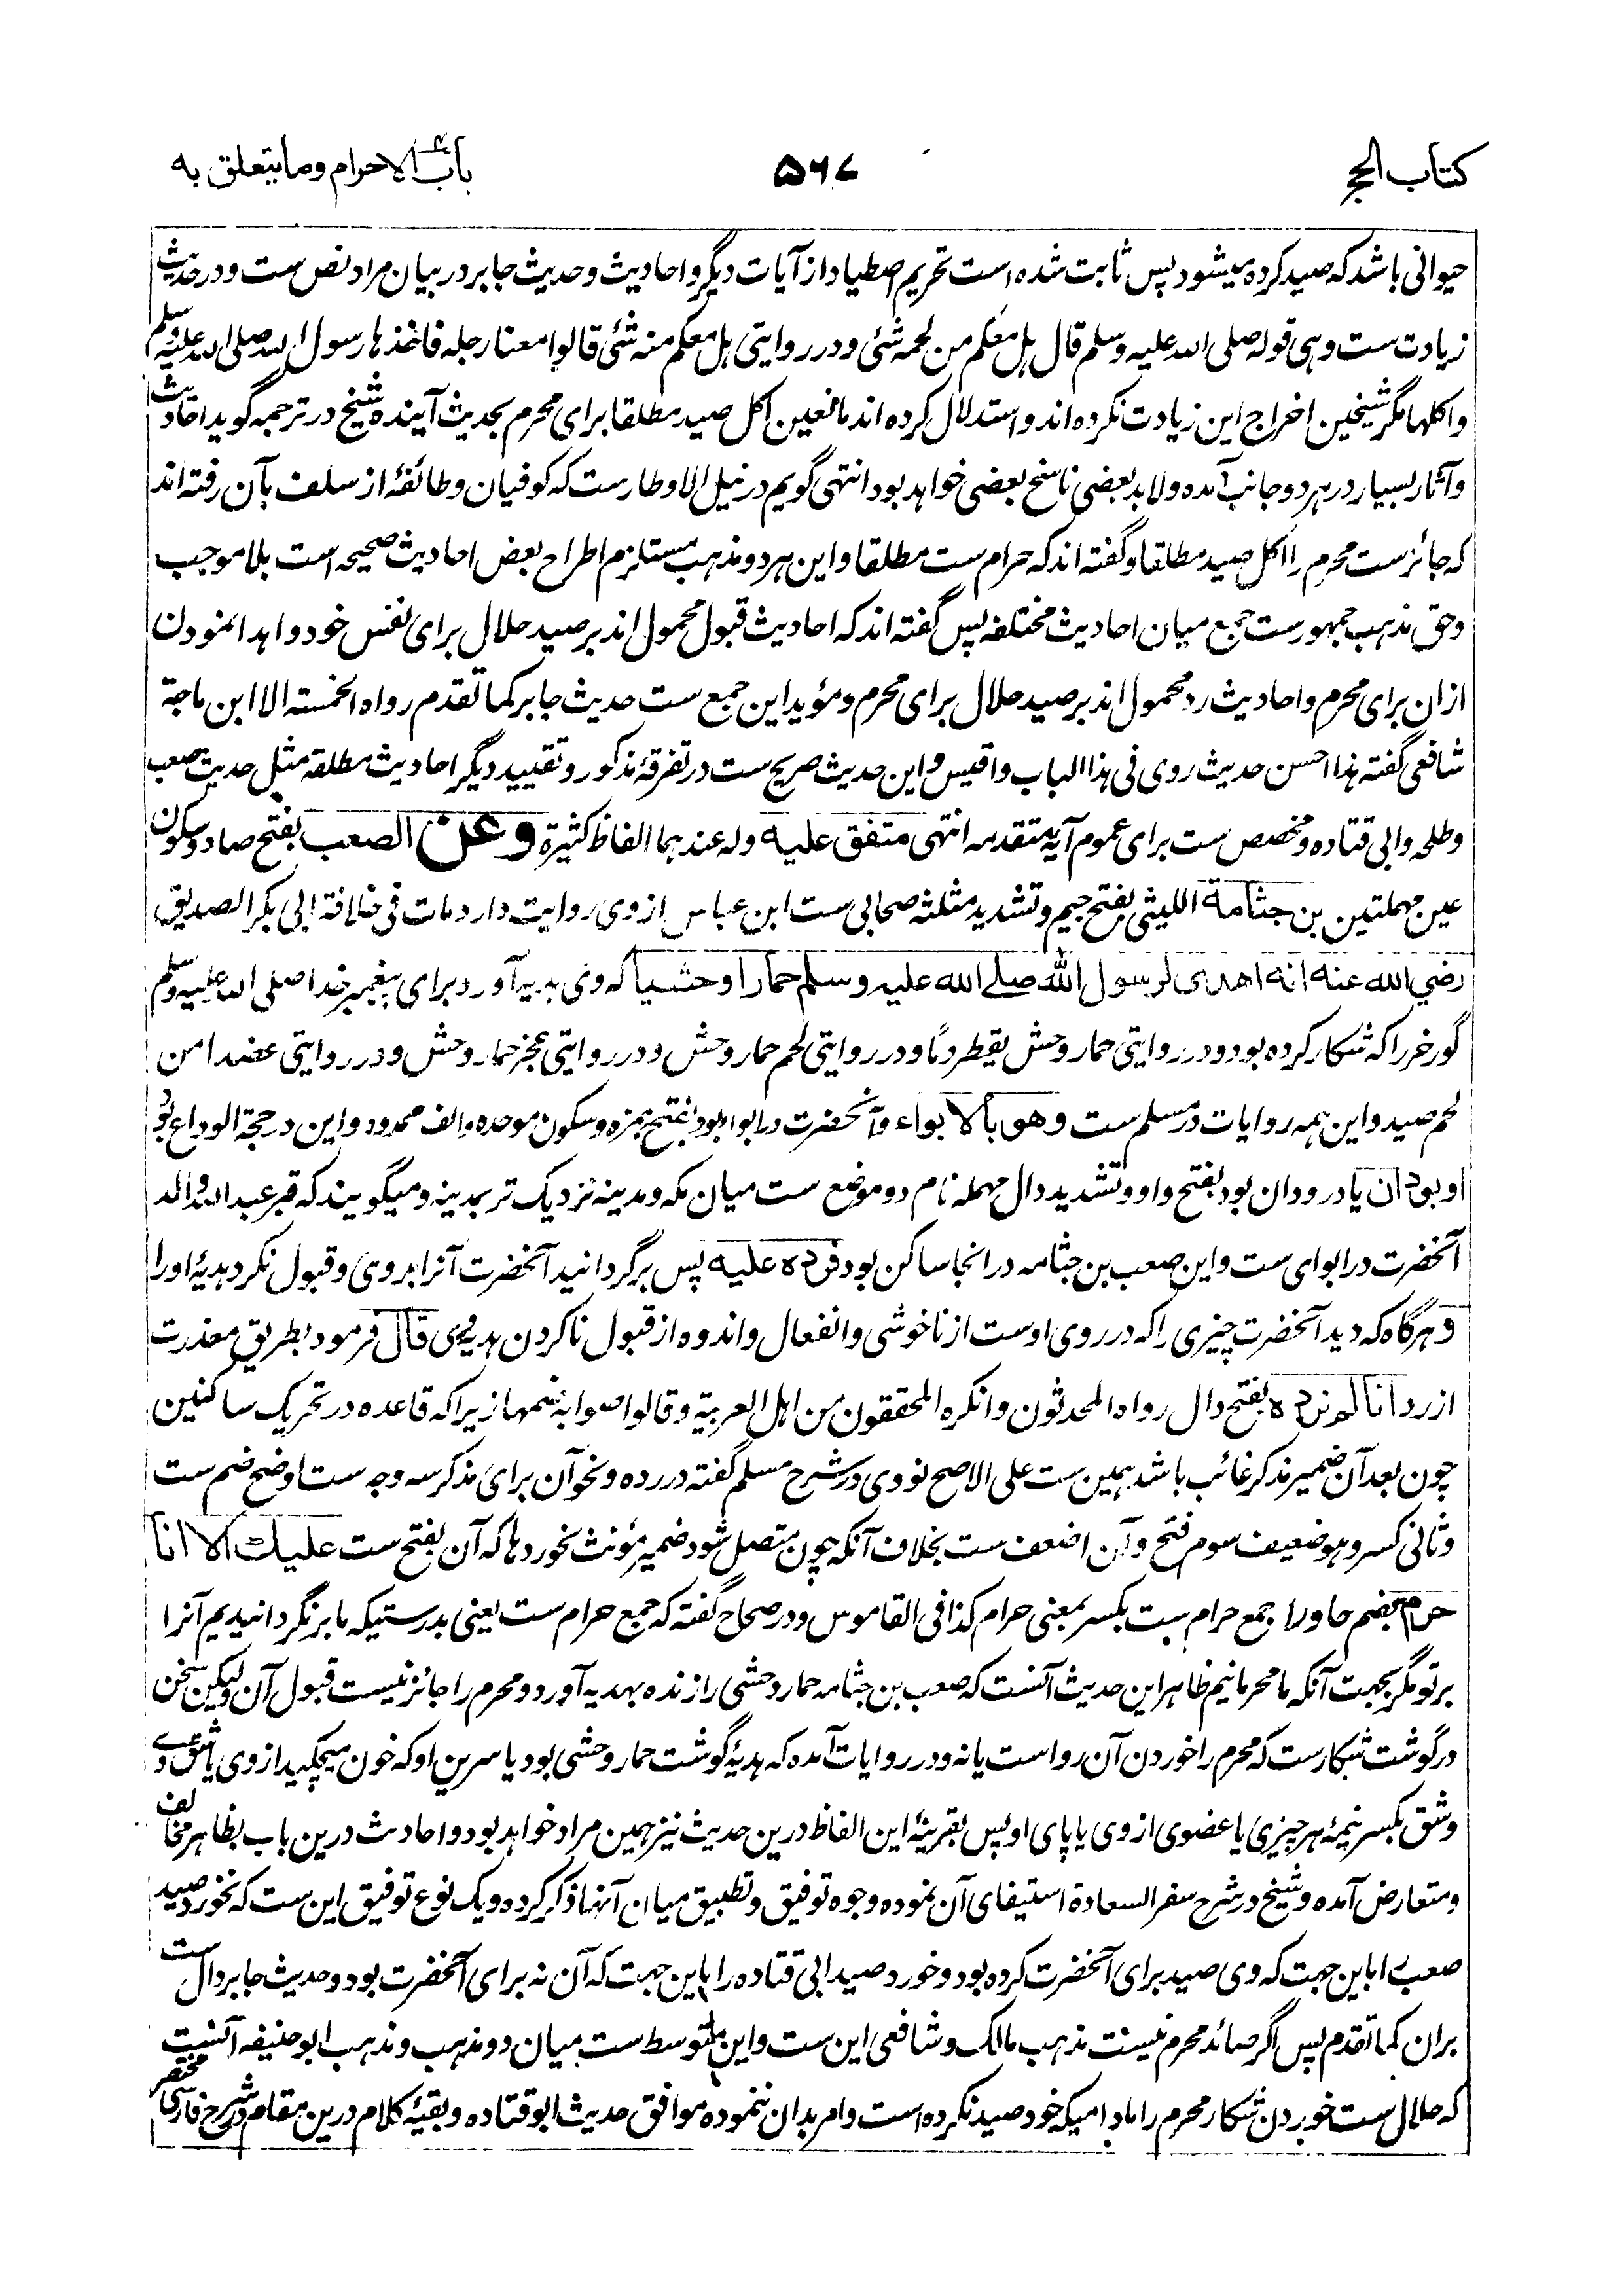 کتاب الحج
۵۶۷
باب الاحرام وما يتعلق به
حیوانی باشد که صید کرده میشود پس ثابت شده است تحریم اصطیاد از آیات دیگر و احادیث و حدیث جابر در بیان مراد نص ست و در حدیث
زیادت ست وهی قوله صلی الله علیه وسلم قال هل معکم من لحمه شئی و در روایتی هل معکم منه شئی قالوا معنا رجله فاخذها رسول الله صلی الله علیه وسلم
واکلها مگر شیخین اخراج این زیادت نکرده اند و استدلال کرده اند مانعین اکل صید مطلقا برای محرم بحدیث آینده شیخ در ترجمه گوید احادیث
و آثار بسیار در هر دو جانب آمده ولابد بعضی ناسخ بعضی خواهد بود انتهی گویم در نیل الاوطار ست که کوفیان و طائفۀ از سلف بآن رفته اند
که جائز ست محرم را اکل صید مطلقا و گفته اند که حرام ست مطلقا و این هر دو مذهب مستلزم اطراح بعض احادیث صحیحه است بلا موجب
وحق مذهب جمهور ست جمع میان احادیث مختلفه پس گفته اند که احادیث قبول محمول اند بر صید حلال برای نفس خود و اهدا نمودن
ازان برای محرم و احادیث رد محمول اند بر صید حلال برای محرم و مؤید این جمع ست حدیث جابر کما تقدم رواه الخمسته الا ابن ماجة
شافعی گفته هذا احسن حدیث روی فی هذا الباب واقیس و این حدیث صریح ست در تفرقۀ مذکور و تقیید دیگر احادیث مطلقه مثل حدیث صعب
و طلحه و ابی قتاده و مخصص ست برای عموم آیۀ متقدمه انتهی متفق علیه وله عندهما الفاظ کثیرة وعن الصعب بفتح صاد و سکون
عین مهملتین بن جثامة اللیثی بفتح جیم و تشدید مثلثه صحابی ست ابن عباس از وی روایت دارد مات فی خلافة ابی بکر الصدیق
رضي الله عنه انه اهدى لرسول الله صلے الله عليه وسلم حمارا وحشيا که وی هدیه آورد برای پیغمبر خدا صلی الله علیه وسلم
گورخر را که شکار کرده بود و در روایتی حمار وحش یقطر دمًا و در روایتی لحم حمار وحش و در روایتی عجز حمار وحش و در روایتی عضدا من
لحم صید و این همه روایات در مسلم ست وهو بالابواء و آنحضرت در ابوا بود بفتح همزه و سکون موحده و الف ممدوده و این در حجة الوداع بود
او بودان یا در ودان بود بفتح واو و تشدید دال مهمله نام دو موضع ست میان مکه و مدینه نزدیک تر بمدینه و میگویند که قبر عبدالله والد
آنحضرت در ابوای ست و این صعب بن جثامه در انجا ساکن بود فرده عليه پس برگردانید آنحضرت آنرا بروی و قبول نکرد هدیۀ او را
و هرگاه که دید آنحضرت چیزی را که در روی اوست از ناخوشی و انفعال و اندوه از قبول ناکردن هدیۀ وی قال فرمود بطریق معذرت
از رد انا لم نرده بفتح دال رواه المحدثون وانکره المحققون من اهل العربیة وقالوا صوابه ضمها زیرا که قاعده در تحریک ساکنین
چون بعد آن ضمیر مذکر غائب باشد همین ست علی الاصح نووی در شرح مسلم گفته در رده و نحو آن برای مذکر سه وجه ست اوضح ضم ست
و ثانی کسر وهو ضعیف سوم فتح و آن اضعف ست بخلاف آنکه چون متصل شود ضمیر مؤنث نحو ردها که آن بفتح ست عليك الا انا
حرم بضم حا و را جمع حرام ست بکسر بمعنی حرام کذا فی القاموس و در صحاح گفته که جمع حرام ست یعنی بدرستیکه ما برنگردانیدیم آنرا
بر تو مگر بجهت آنکه ما محرمانیم ظاهر این حدیث آنست که صعب بن جثامه حمار وحشی را زنده بهدیه آورد و محرم را جائز نیست قبول آن ولیکن سخن
در گوشت شکار ست که محرم را خوردن آن رواست یا نه و در روایات آمده که هدیۀ گوشت حمار وحشی بود یا سرین او که خون میچکید از وی یا شق وے
و شق بکسر نیمۀ هر چیزی یا عضوی از وی یا پای او پس بقرینۀ این الفاظ درین حدیث نیز همین مراد خواهد بود و احادیث درین باب بظاهر مخالف
و متعارض آمده و شیخ در شرح سفر السعادة استیفای آن نموده وجوه توفیق و تطبیق میان آنها ذکر کرده و یک نوع توفیق این ست که نخورد صید
صعب را باین جهت که وی صید برای آنحضرت کرده بود و خورد صید ابی قتاده را باین جهت که آن نه برای آنحضرت بود و حدیث جابر دال ست
بران کما تقدم پس اگر صائد محرم نیست مذهب مالک و شافعی این ست و این متوسط ست میان دو مذهب و مذهب ابو حنیفه آنست
که حلال ست خوردن شکار محرم را مادامیکه خود صید نکرده است و امر بدان ننموده موافق حدیث ابو قتاده و بقیۀ کلام درین مقام در شرح فارسی مختصر